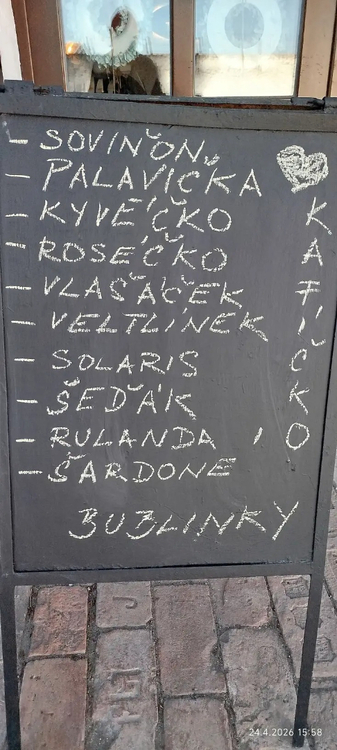 - SOVIŇÓN
- PALAVIČKA
- KYVÉČKO
- ROSÉČKO
- VLAŠÁČEK
- VELTLÍNEK
- SOLARIS
- ŠEĎÁK
- RULANDA
- ŠARDONÉ
BUBLINKY
KAFÍČKO
24.4.2026 15:58